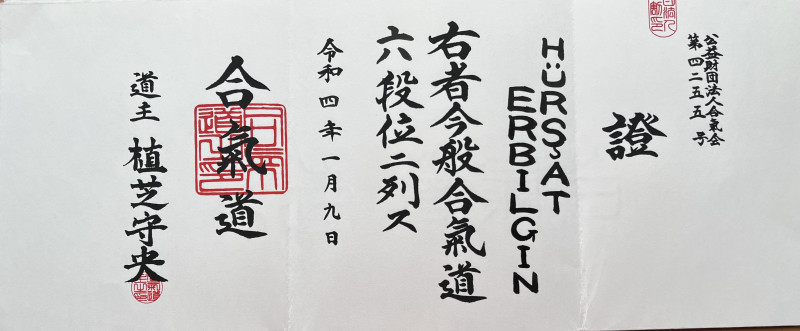 公益財団法人合氣会
第四二五五号
證
HÜRŞAT
ERBILGIN
右者今般合氣道
六段位ニ列ス
令和四年一月九日
合氣道
道主 植芝守央